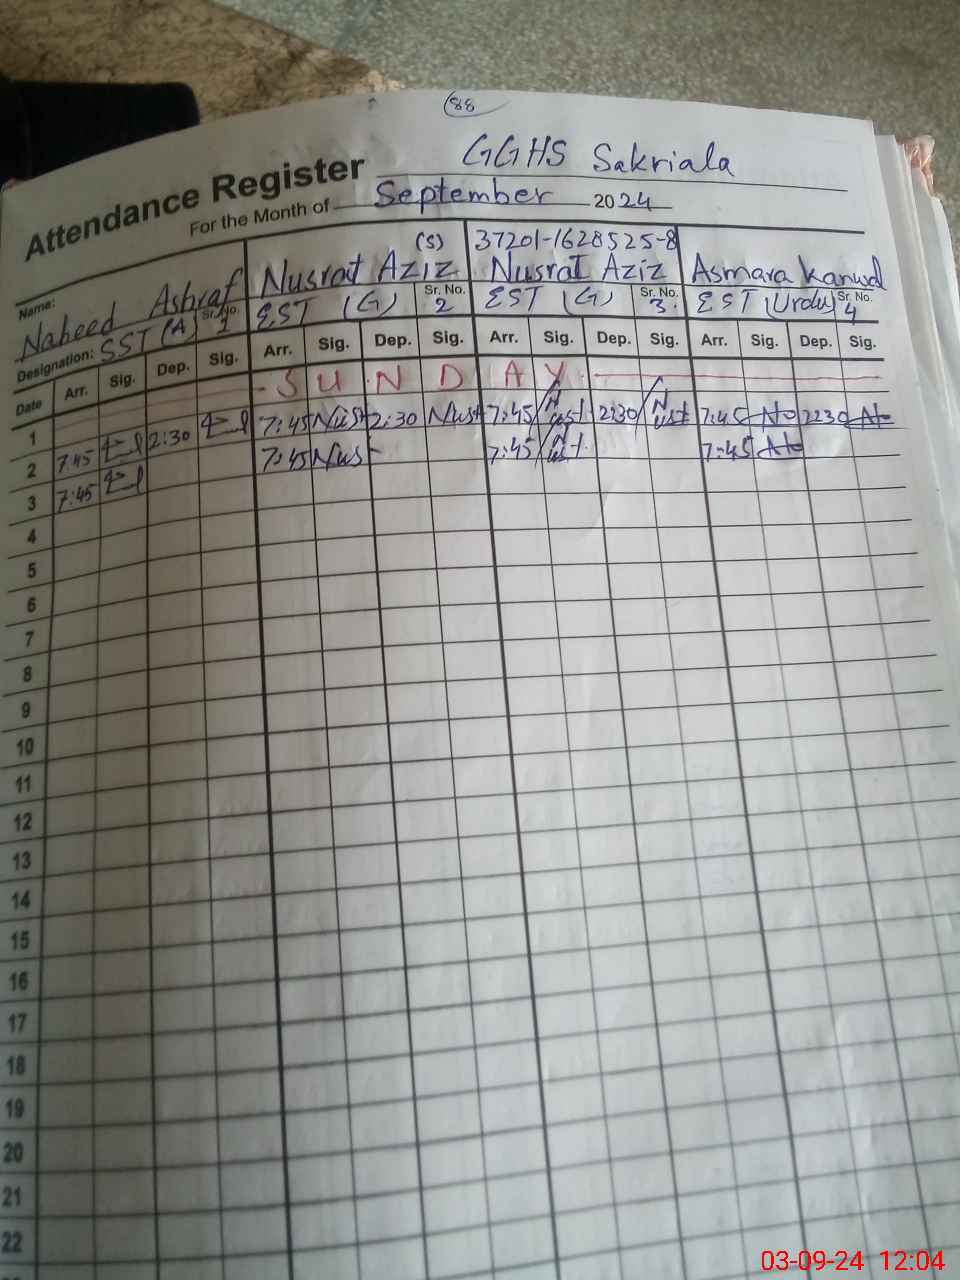 88
GGHS Sakriala
Attendance Register
For the Month of September 2024
(S) 37201-1628525-8
Name: Naheed Ashraf Nusrat Aziz Nusrat Aziz Asmara Kanwal
Designation: SST (A) Sr. No. 1 EST (G) Sr. No. 2 EST (G) Sr. No. 3 EST (Urdu) Sr. No. 4
Date Arr. Sig. Dep. Sig. Arr. Sig. Dep. Sig. Arr. Sig. Dep. Sig. Arr. Sig. Dep. Sig.
1 SUNDAY
2 7:45 2:30 7:45 Nust 2:30 Nust 7:45 Nust 2230 Nust 7:45 2230
3 7:45 7:45 Nus 7:45 7:45
4
5
6
7
8
9
10
11
12
13
14
15
16
17
18
19
20
21
22
03-09-24 12:04